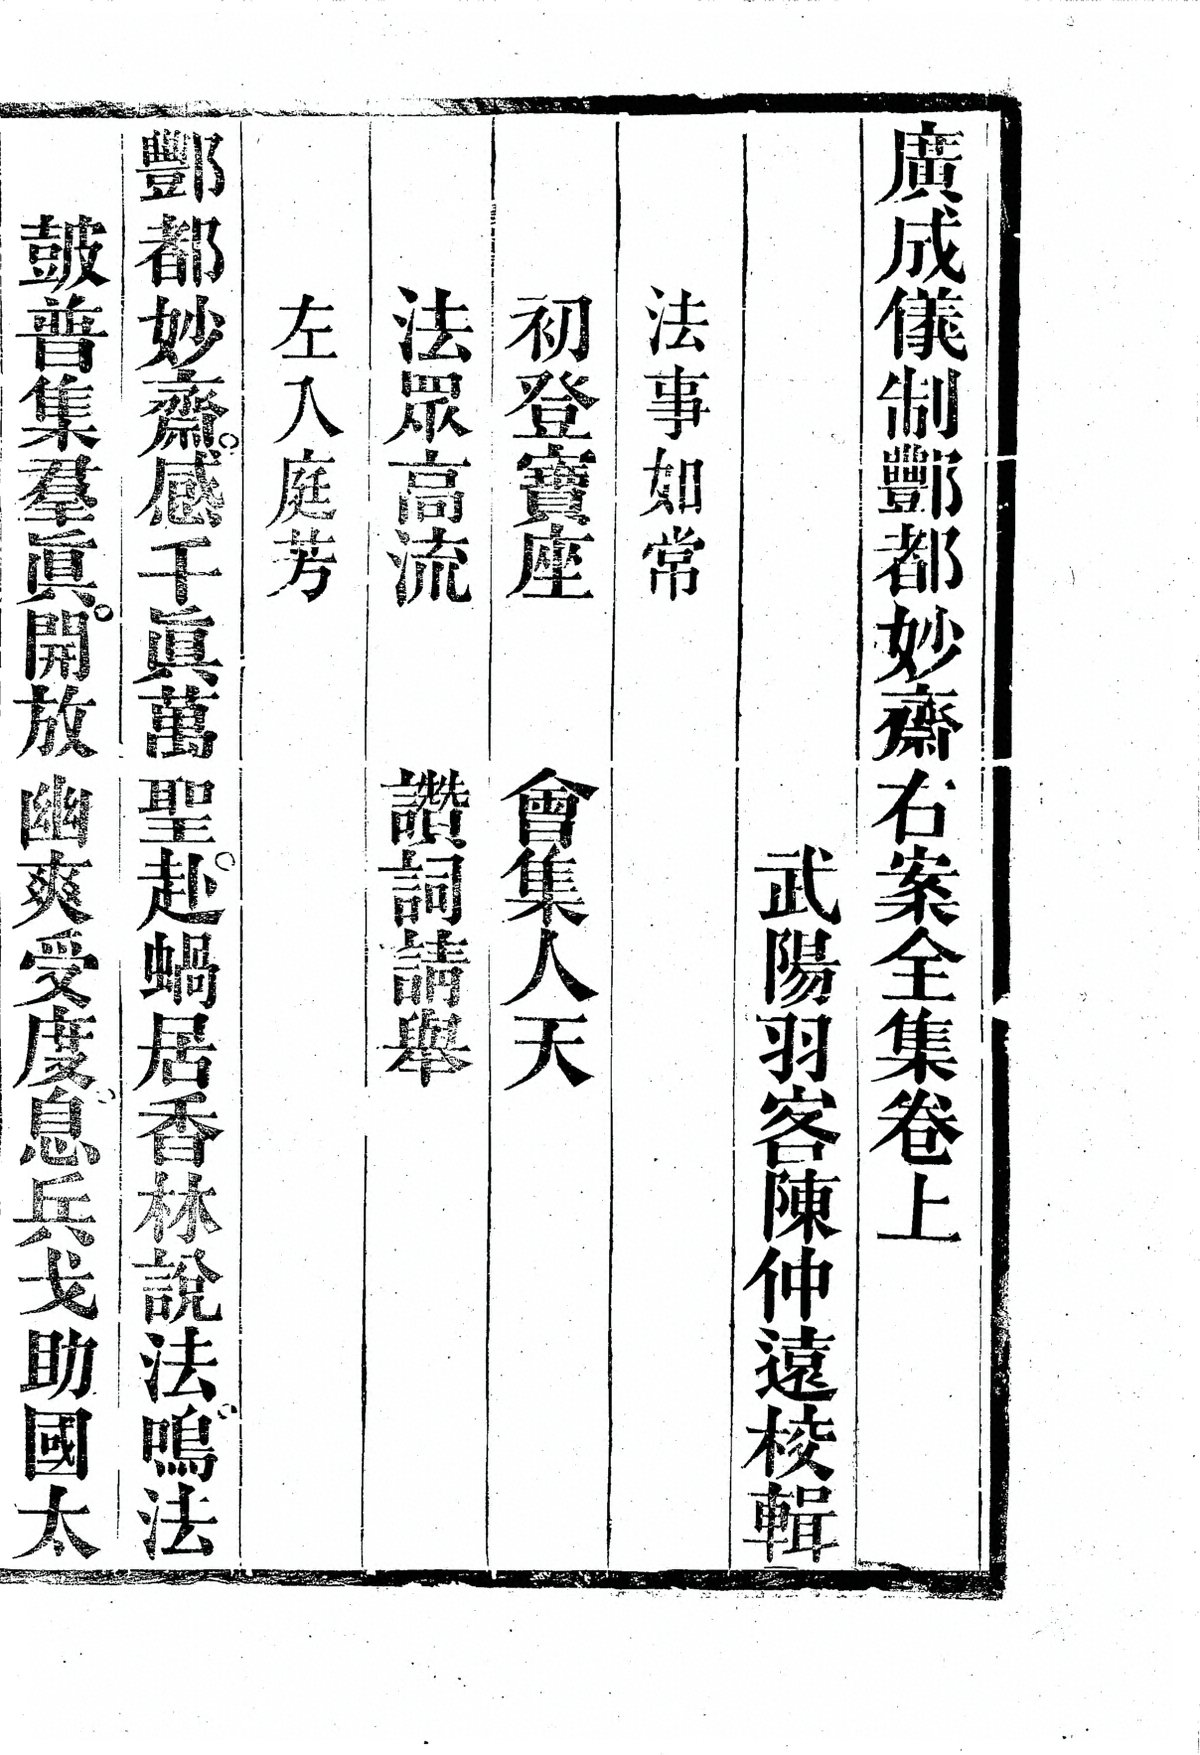 廣成儀制酆都妙齋右案全集卷上
武陽羽客陳仲遠校輯
法事如常
初登寶座　會集人天
法眾高流　讚詞請舉
左入庭芳
酆都妙齋。感千眞萬聖。赴蝸居香林說法。鳴法
鼓普集羣眞。開放幽爽受度。息兵戈助國太